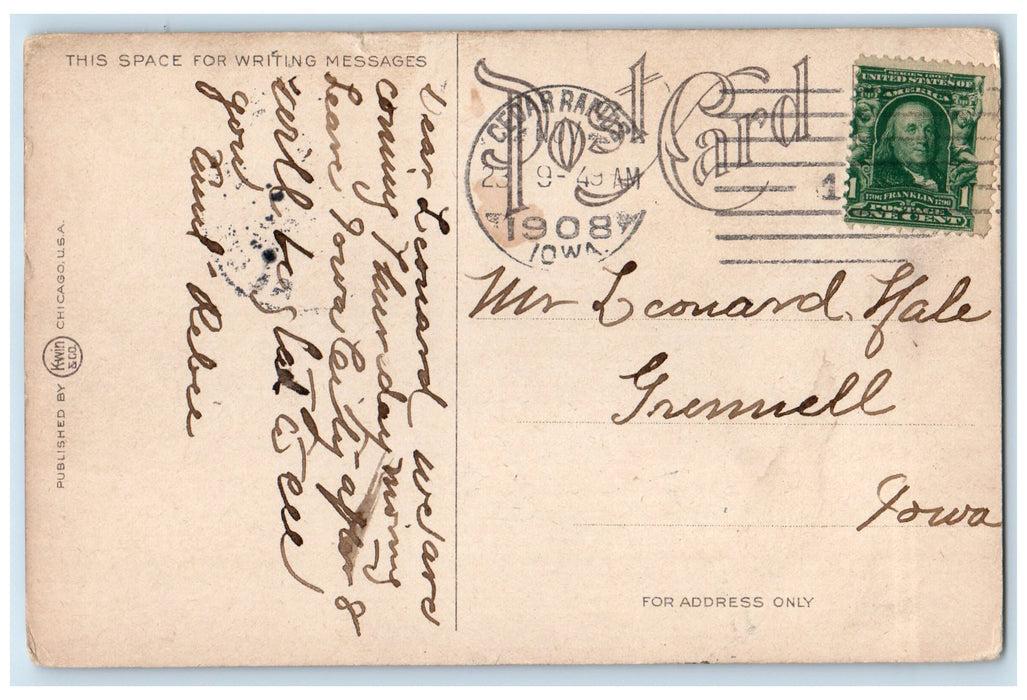 THIS SPACE FOR WRITING MESSAGES
Dear Leonard we are
coming Thursday morning
Leave Iowa City after 8
will be glad to see
you
Aunt
PUBLISHED BY Kwin & CO. CHICAGO, U.S.A.
Post Card
CEDAR RAPIDS
23 9-49 AM
1908
IOWA
1
SERIES 1902
UNITED STATES OF
AMERICA
1706 FRANKLIN 1790
1 1
POSTAGE
ONE CENT
Mr Leonard Hale
Grennell
Iowa
FOR ADDRESS ONLY